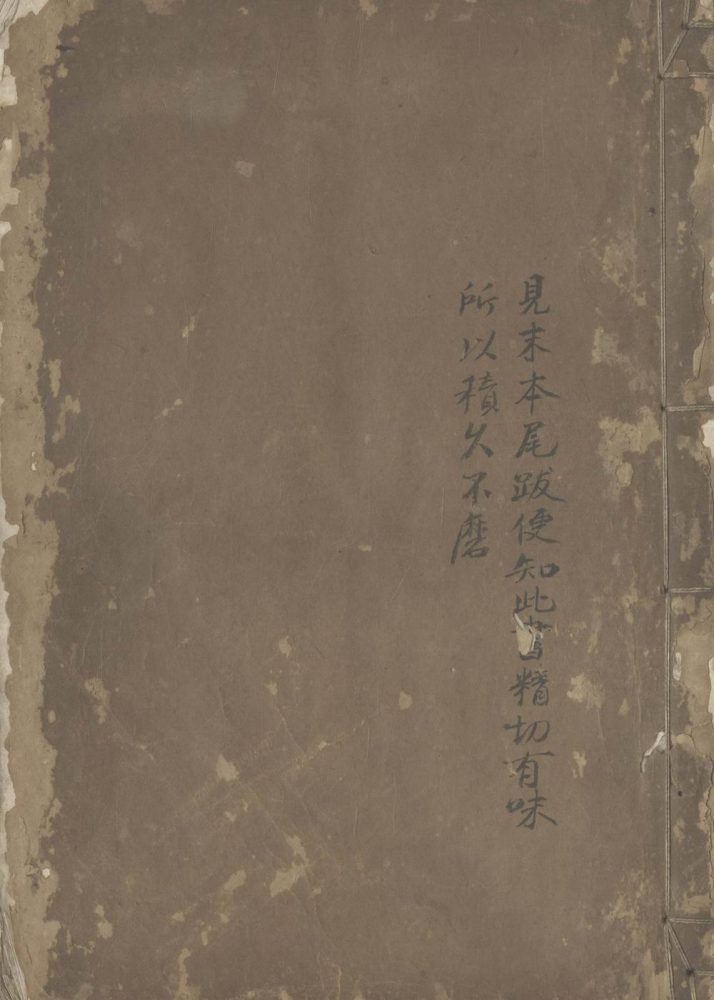 見末本尾跋便知此書精切有味
所以積久不磨